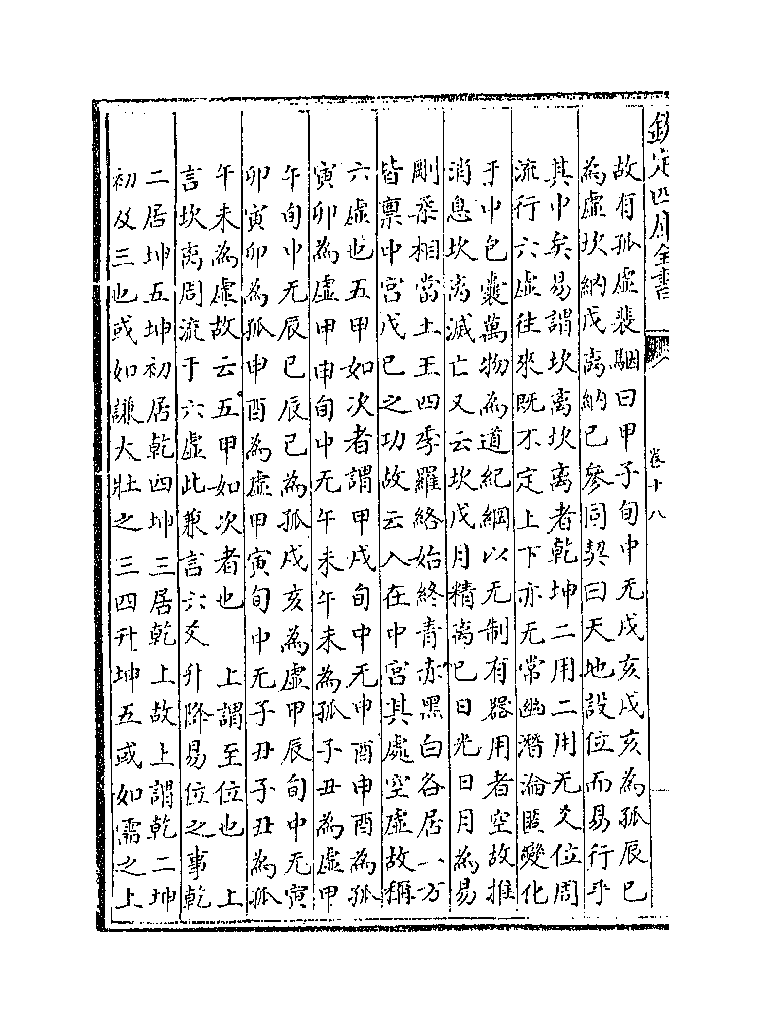 欽定四庫全書
卷十八
故有孤虛裴駰曰甲子旬中无戌亥戌亥為孤辰巳
為虛坎納戊离納己參同契曰天地設位而易行乎
其中矣易謂坎离坎离者乾坤二用二用无爻位周
流行六虛往來既不定上下亦无常幽潛淪匿變化
于中包囊萬物為道紀綱以无制有器用者空故推
消息坎离滅亡又云坎戊月精离己日光日月為易
剛柔相當土王四季羅絡始終青赤黑白各居一方
皆禀中宮戊己之功故云入在中宮其處空虛故稱
六虛也五甲如次者謂甲戌旬中无申酉申酉為孤
寅卯為虛甲申旬中无午未午未為孤子丑為虛甲
午旬中无辰巳辰巳為孤戌亥為虛甲辰旬中无寅
卯寅卯為孤申酉為虛甲寅旬中无子丑子丑為孤
午未為虛故云五甲如次者也 上謂至位也 上
言坎离周流于六虛此兼言六爻升降易位之事乾
二居坤五坤初居乾四坤三居乾上故上謂乾二坤
初及三也或如謙大壯之三四升坤五或如需之上